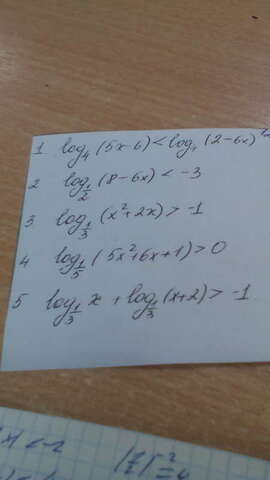 1 log₄ (5x-6) < log₄ (2-6x)
2 log_{1/2} (8-6x) < -3
3 log_{1/3} (x²+2x) > -1
4 log_{1/5} (5x²+6x+1) > 0
5 log_{1/3} x + log_{1/3} (x+2) > -1